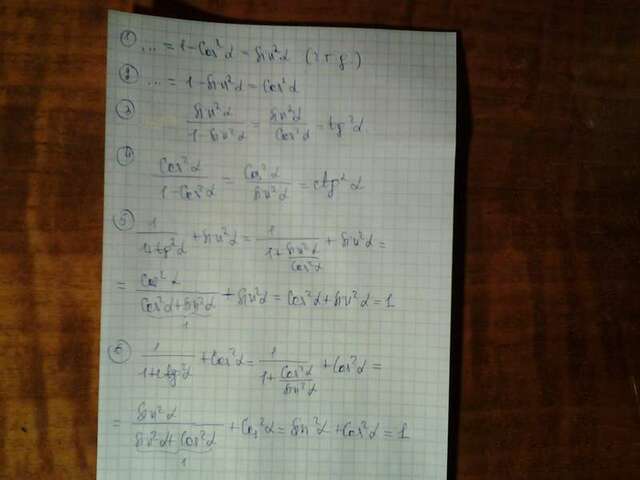 1) ... = 1 - Cos²α = Sin²α (ч.т.д.)
2) ... = 1 - Sin²α = Cos²α
3) Sin²α / (1 - Sin²α) = Sin²α / Cos²α = tg²α
4) Cos²α / (1 - Cos²α) = Cos²α / Sin²α = ctg²α
5) 1 / (1 + tg²α) + Sin²α = 1 / (1 + Sin²α / Cos²α) + Sin²α =
= Cos²α / (Cos²α + Sin²α) + Sin²α = Cos²α + Sin²α = 1
1
6) 1 / (1 + ctg²α) + Cos²α = 1 / (1 + Cos²α / Sin²α) + Cos²α =
= Sin²α / (Sin²α + Cos²α) + Cos²α = Sin²α + Cos²α = 1
1